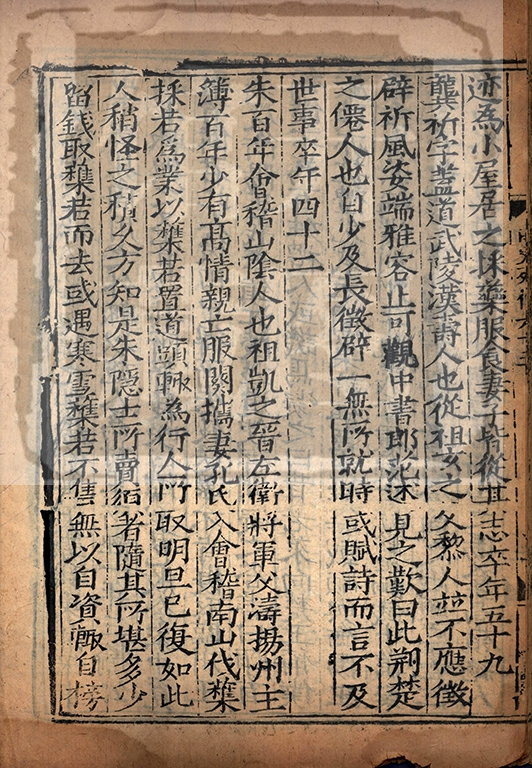 迹為小屋居之採藥服食妻子皆從其志卒年五十九
龔祈字蓋道武陵漢壽人也從祖玄之父黎人並不應徵
辟祈風姿端雅容止可觀中書郎范述見之歎曰此荊楚
之僊人也自少及長徵辟一無所就時或賦詩而言不及
世事卒年四十二
朱百年會稽山陰人也祖凱之晉左衛將軍父濤揚州主
簿百年少有高情親亡服闋攜妻孔氏入會稽南山伐樵
採若爲業以樵若置道頭輒為行人所取明旦已復如此
人稍怪之積久方知是朱隱士所賣須者隨其所堪多少
留錢取樵若而去或遇寒雪樵若不售無以自資輒自榜